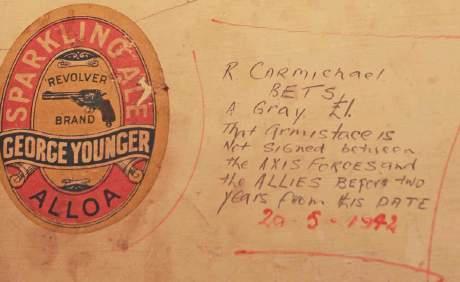 SPARKLING ALE
REVOLVER
BRAND
GEORGE YOUNGER
ALLOA
R CARMICHAEL
BETS,
A Gray £1.
That Armistace is
Not Signed between
the AXIS FORCES and
the ALLIES Before two
years from this DATE
20-5-1942